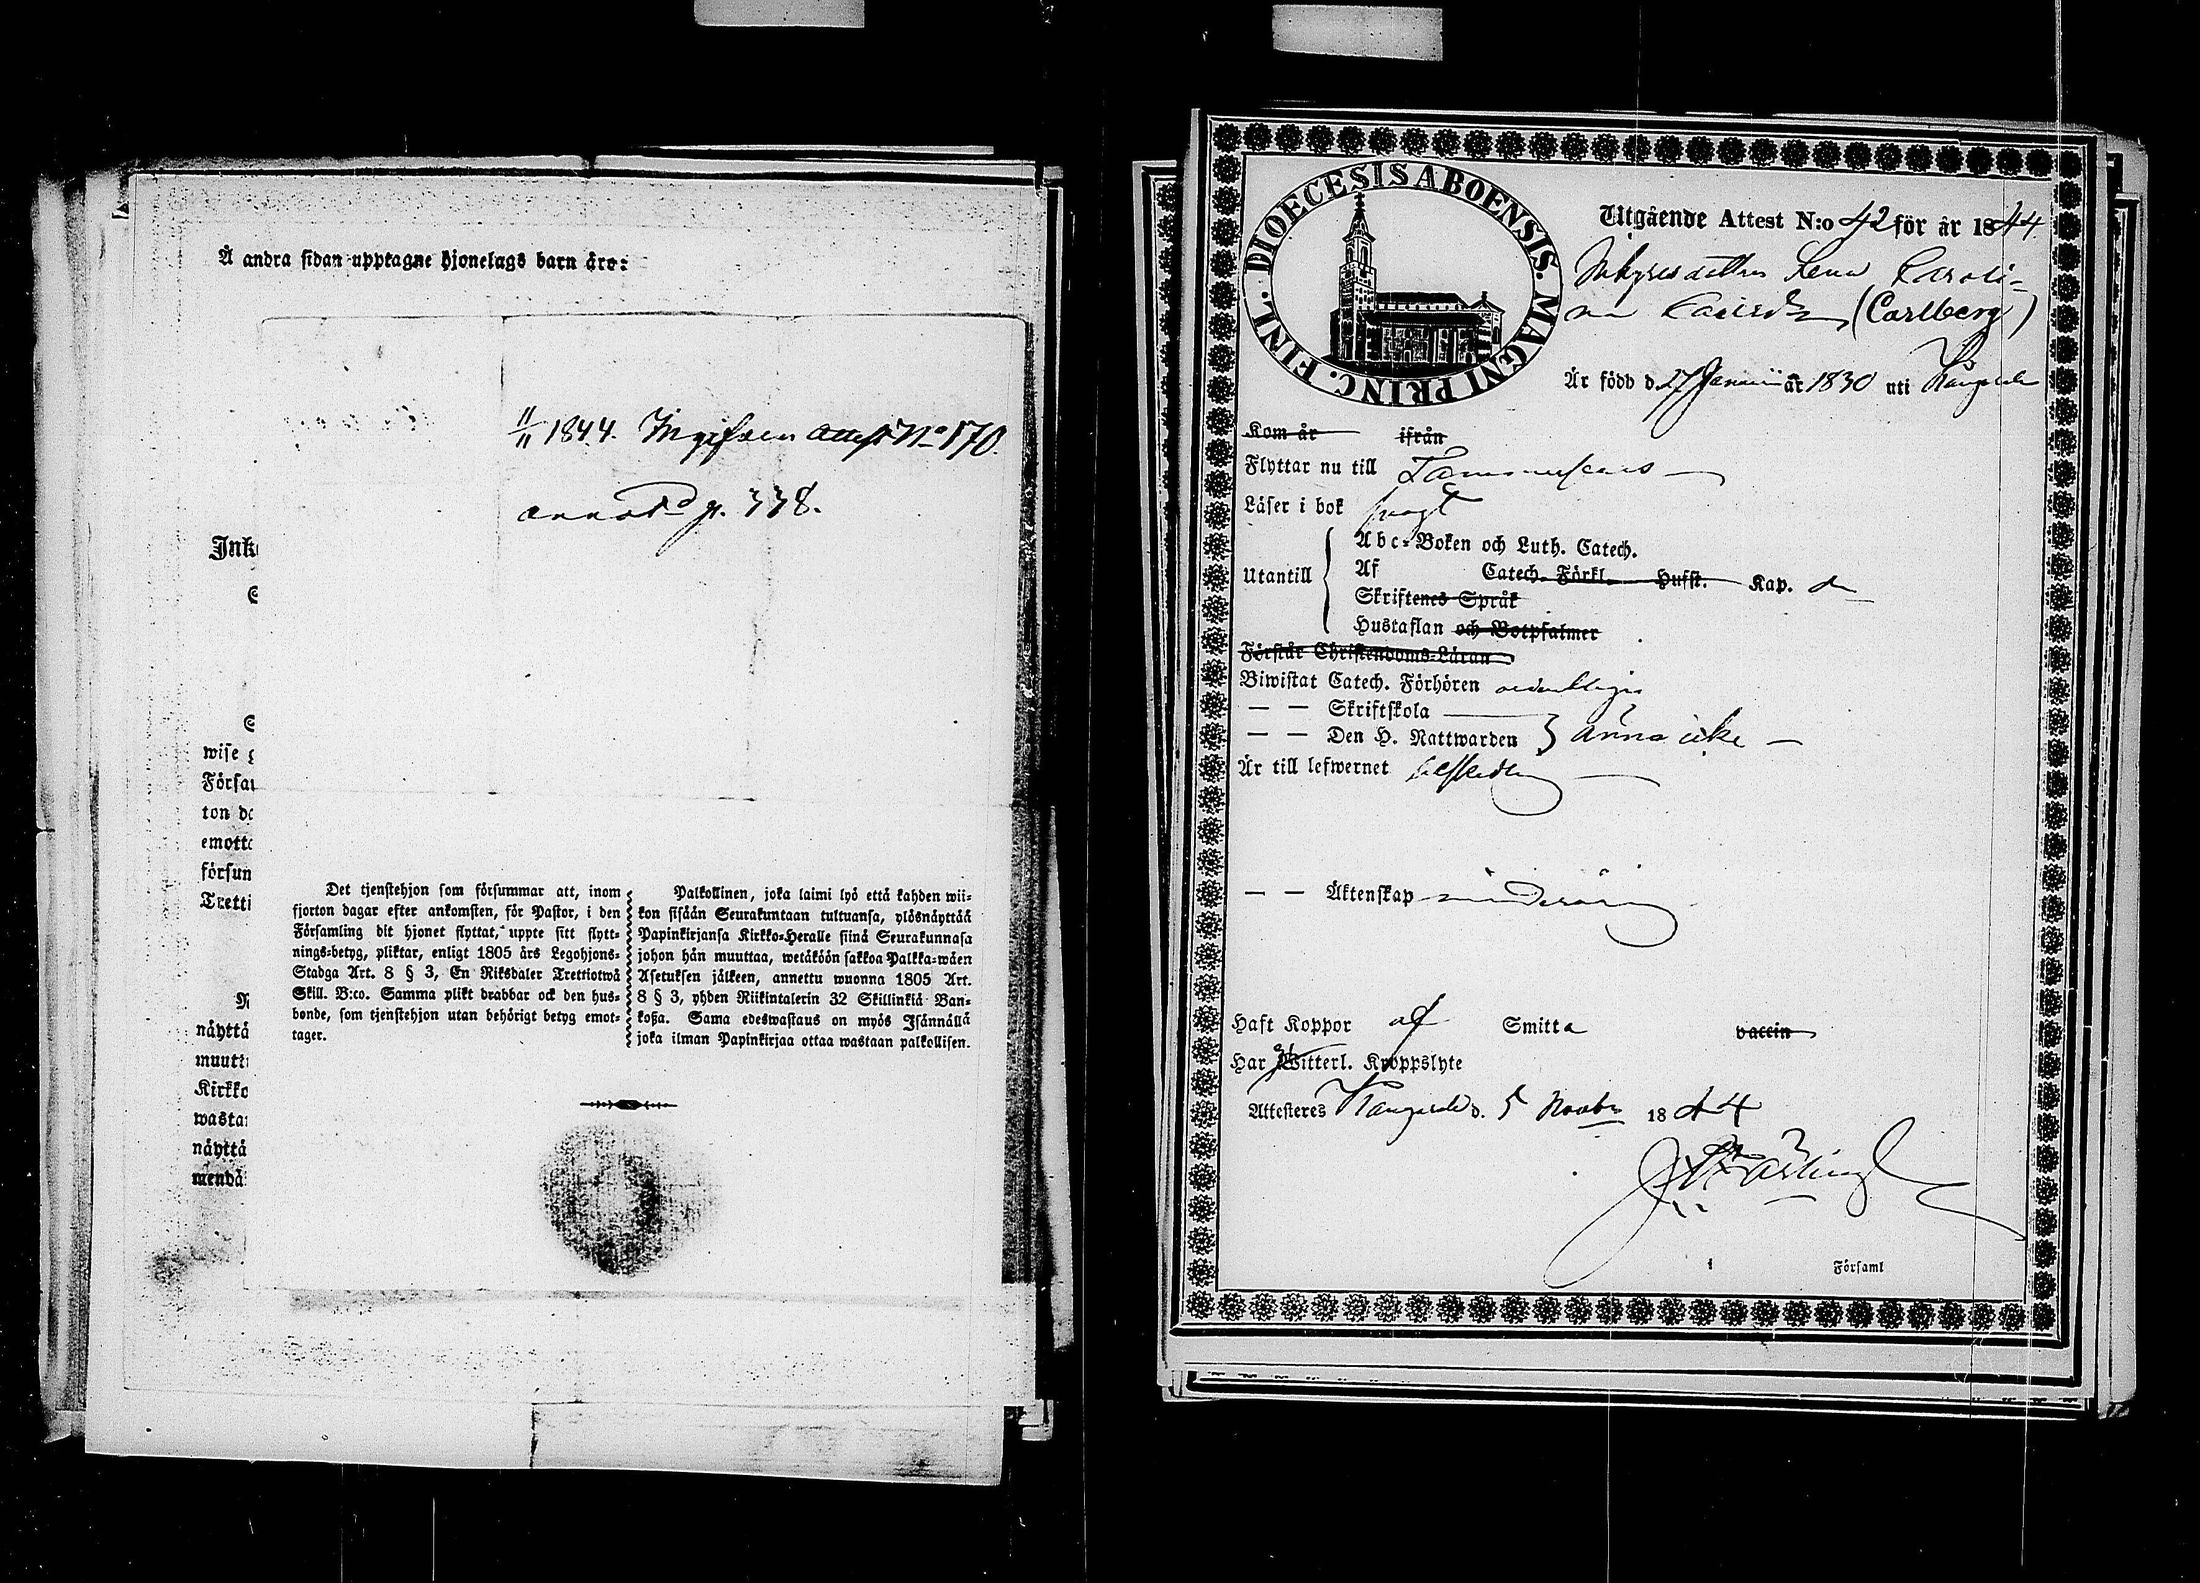 Å andra sidan upptagne hjonelags barn äro:
11/11 1844. Ingifven attest No 170.
annotd p. 338.
Ink
S
S
wise
Försa
ton da
emotta
försun
Tretti
N
näyttä
muutt
Kirkko
wasta
näyttä
mendä
Det tjenstehjon som försummar att, inom
fjorton dagar efter ankomsten, för Pastor, i den
Församling dit hjonet flyttat, uppte sitt flytt-
nings-betyg, pliktar, enligt 1805 års Legohjons-
Stadga Art. 8 § 3, En Riksdaler Trettiotwå
Skill. B:co. Samma plikt drabbar ock den hus-
bonde, som tjenstehjon utan behörigt betyg emot-
tager.
Palkollinen, joka laimi lyö että kahden wii-
kon sisään Seurakuntaan tultuansa, ylösnäyttää
Papinkirjansa Kirkko-Heralle siinä Seurakunnasa
johon hän muuttaa, wetäköön sakkoa Palkka-wäen
Asetuksen jälkeen, annettu wuonna 1805 Art.
8 § 3, yhden Riikintalerin 32 Skillinkiä Ban-
koßa. Sama edeswastaus on myös Isännällä
joka ilman Papinkirjaa ottaa wastaan palkollisen.
DIOECESIS ABOENSIS. MAGNI PRINC. FINL.
Utgående Attest N:o 42 för år 1844.
Lena Caroli-
na (Carlberg)
Är född d. 27 Januarii år 1830 uti Kangasala
Kom år ifrån
Flyttar nu till Tammerfors
Läser i bok
Utantill
Abc-Boken och Luth. Catech.
Af Catech. Förkl. Hufst. Kap.
Skriftenes Språk
Hustaflan och Botpsalmer
Förstår Christendoms-Läran
Biwistat Catech. Förhören ordentligen
— — Skriftskola
— — Den H. Nattwarden } ännu icke
Är till lefwernet
— — Äktenskap minderårig
Haft Koppor af Smitta vaccin
Har ej Witterl. Kroppslyte
Attesteres Kangasala d. 5 Novbr 1844
Församl